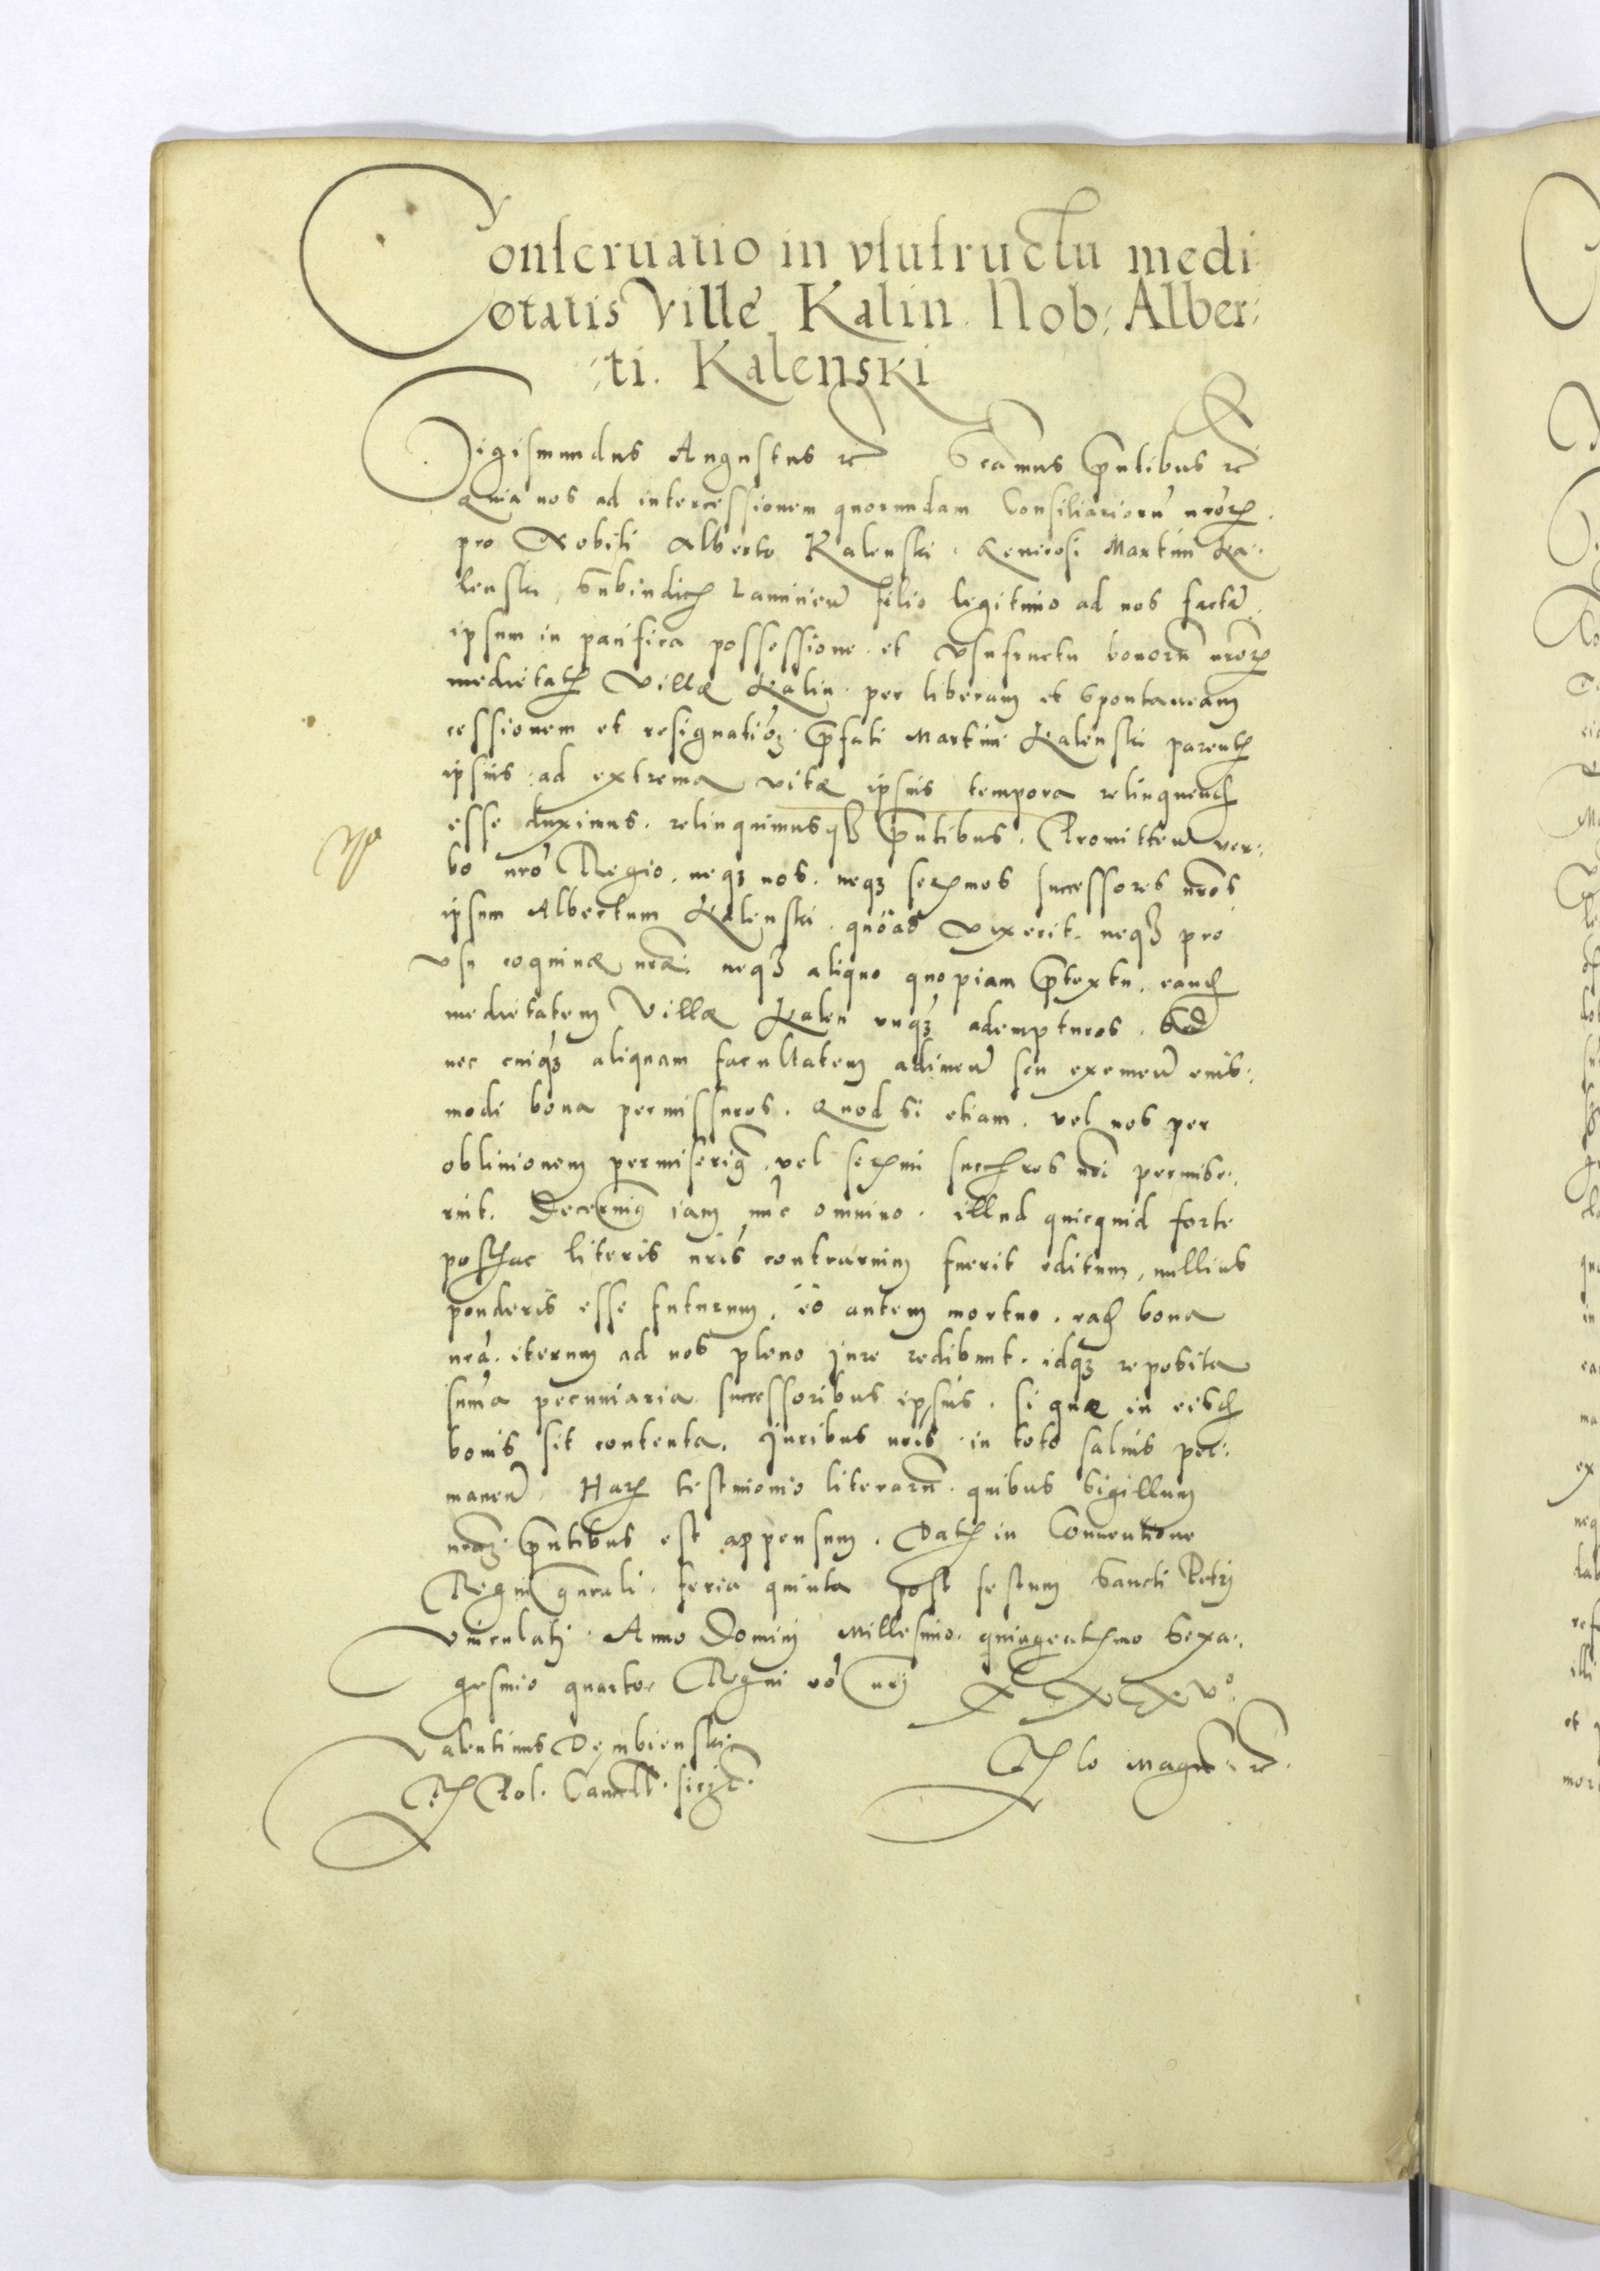 Conseruatio in vsufructu medi
etatis Ville Kalin Nob: Alber:
:ti. Kalenski
Sigismundus Augustus rc Significamus pñtibus rc
Quia nos ad intercessionem quorundam Consiliariorũ nrõrꝝ
pro Nobili Alberto Kalenski. Generosi Martini Ka:
lenski, filio legitimo ad nos factã,
ipsum in pacifica possessione et Vsufructu bonorũ nrõrꝝ
medietatis Villæ Kalin. per liberam et spontaneam
cessionem et resignatiõȝ pfati Martini Kalenski parentis
ipsius ad extrema vitæ ipsius tempora relinquend
esse duximus. relinquimusqȝ pñtibus. Promitten ver:
bo nrõ Regio. neqȝ nos. neqȝ serꝝmos successores nrõs
ipsum Albertum Kalenski. quoad Vixerit. neqȝ pro
vsu coquinæ nrãe neqȝ aliquo quopiam ptextu. eand
medietatem Villæ Kalen vnqȝ adempturos. Sed
nec cuiqȝ aliquam facultatem adimen seu eximen eius:
modi bona permissuros. Quod si etiam. vel nos per
obliuionem permiserimꝰ, vel serꝝmi succesres nrĩ permise:
rint. Decernimꝰ iam nũc omnino. illud quicquid forte
posthac literis nrĩs contrarium fuerit editum, nullius
ponderis esse futurum. eõ autem mortuo. ead bona
nrã. iterum ad nos pleno Jure redibunt. idqȝ reposita
sum̃a pecuniaria successoribus ipsius. si quæ in eisd
bonis sit contenta. Juribus nrĩs in toto saluis per:
manen. Harꝝ testimonio literarũ. quibus Sigillum
nrũȝ pñtibus est appensum. Dat in Conuentione
Regni gñrali. feria quinta post festum Sancti Petrj
Vinculatj. Anno Dominj Millesimo quingentesimo Sexa:
gesimo quarto. Regni vo nrj XXXVo.
Valentinus Dembienski
R Pol. Cancell. scrpt.
lo Magtas rc.